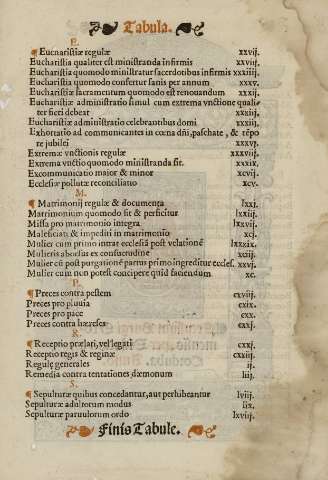 Tabula.
E.
¶ Eucharistiæ regulæ xxvij.
Eucharistia qualiter est ministranda infirmis xxviij.
Eucharistia quomodo ministratur sacerdotibus infirmis xxxiiij.
Eucharistia quomodo confertur sanis per annum xxxv.
Eucharistiæ sacramentum quomodo est renouandum xxxij.
Eucharistiæ administratio simul cum extrema vnctione quali-
ter fieri debeat xxxix.
Eucharistiæ administratio celebrantibus domi xxxiij.
Exhortatio ad communicantes in cœna dñi, paschate, & tẽpo
re jubilei xxxvj.
Extremæ vnctionis regulæ xxxviij.
Extrema vnctio quomodo ministranda sit. xxxix.
Excommunicatio maior & minor xcvij.
Ecclesiæ pollutæ reconciliatio xcv.
M.
¶ Matrimonij regulæ & documenta lxxj.
Matrimonium quomodo sit & perficitur lxxiij.
Missa pro matrimonio integra lxxvij.
Maleficiati & impediti in matrimonio xcj.
Mulier cum primo intrat ecclesiã post velationẽ lxxxix.
Mulieris abortus ex consuetudine xciij.
Mulier cũ post purgationẽ partus primo ingreditur eccles. xxvj.
Mulier cum non potest concipere quid faciendum xc.
P.
¶ Preces contra pestem cxviij.
Preces pro pluuia cxix.
Preces pro pace cxx.
Preces contra hæreses cxxj.
R.
¶ Receptio prælati, vel legati cxxj.
Receptio regis & reginæ cxxiij.
Regulę generales ij.
Remedia contra tentationes dæmonum liij.
S.
¶ Sepulturæ quibus concedantur, aut perhibeantur lvij.
Sepulturæ adultorum modus lix.
Sepulturæ paruulorum ordo lxviij.
Finis Tabule.